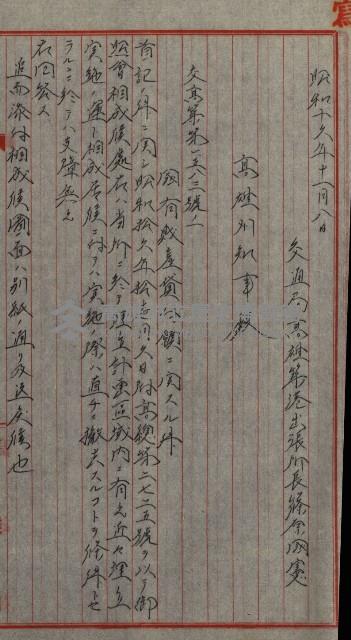 昭和十九年十一月八日
交通局高雄築港出張所長篠原國憲
高雄州知事殿
交高築第一五八三號ノ一
國有財産貸付願ニ関スル件
首記ノ件ニ関シ昭和拾九年拾壹月六日附高總第二七二五號ヲ以テ御
照會相成候處右ハ當所ニ於テ埋立計画區域内ニ有之近々埋立
実施ノ運ト相成居候ニ付テハ実施ノ際ハ直チニ撤去スルコトヲ條件トセ
ラルルニ於テハ支障無之
右回答ス
追而添付相成候圖面ハ別紙ノ通リ及返戻候也